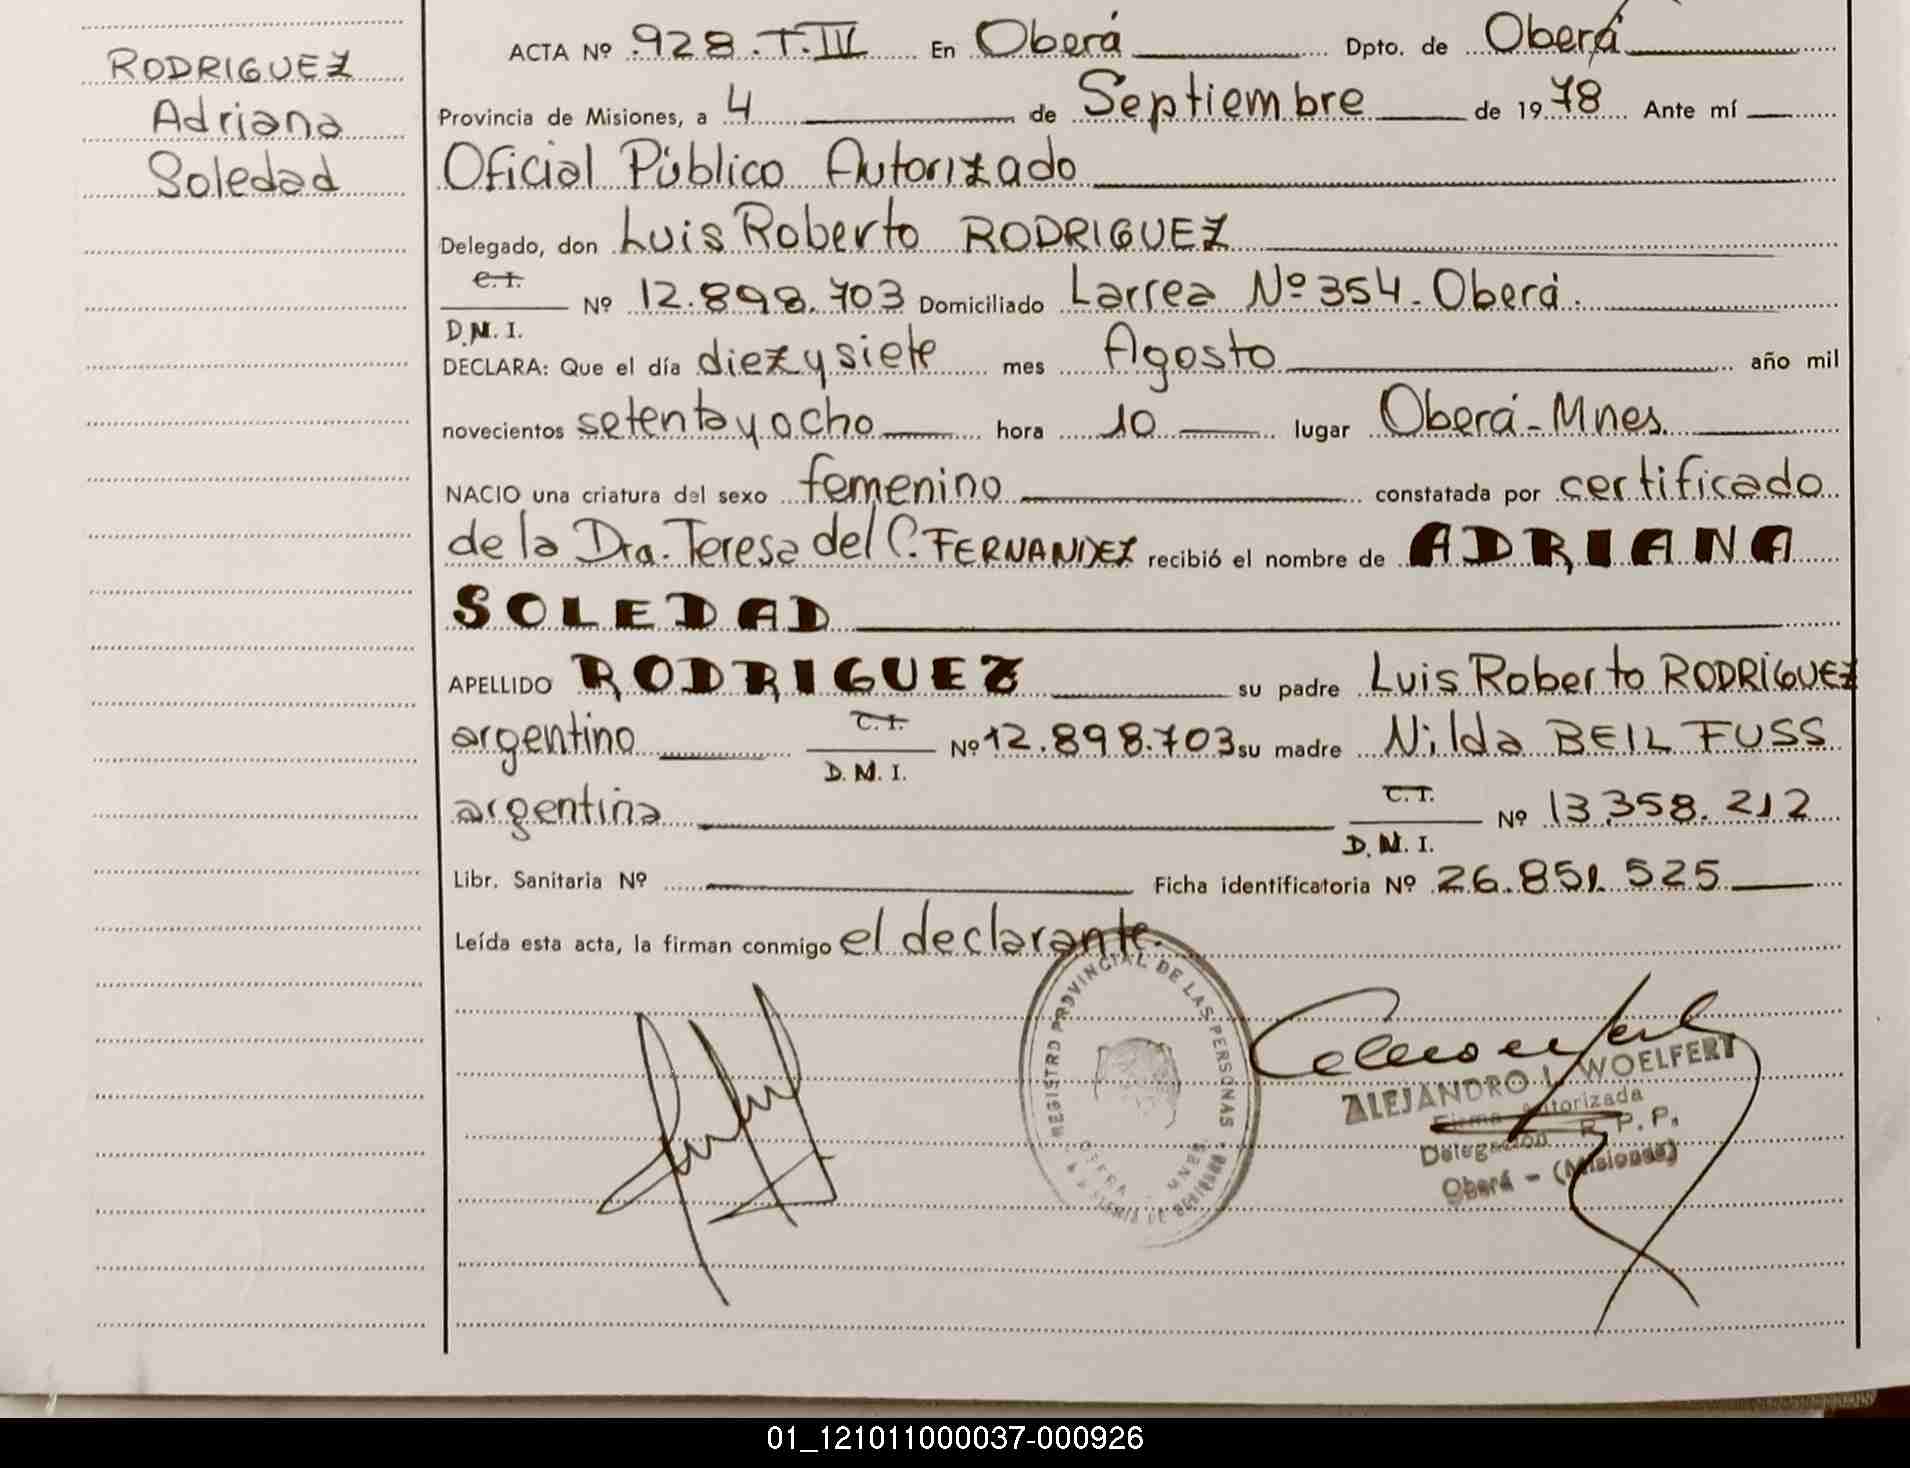 RODRIGUEZ
Adriana
Soledad
ACTA Nº 928.T.III En Oberá Dpto. de Oberá
Provincia de Misiones, a 4 de Septiembre de 1978 Ante mí
Oficial Público Autorizado
Delegado, don Luis Roberto RODRIGUEZ
C.I.
Nº 12.898.703 Domiciliado Larrea Nº 354. Oberá.
D.N.I.
DECLARA: Que el día diez y siete mes Agosto año mil
novecientos setenta y ocho hora 10 lugar Oberá-Mnes.
NACIO una criatura del sexo femenino constatada por certificado
de la Dra. Teresa del C. FERNANDEZ recibió el nombre de ADRIANA
SOLEDAD
APELLIDO RODRIGUEZ su padre Luis Roberto RODRÍGUEZ
argentino C.I. D.N.I. Nº 12.898.703 su madre Nilda BEIL FUSS
argentina C.I. D.N.I. Nº 13.358.212
Libr. Sanitaria Nº Ficha identificatoria Nº 26.851.525
Leída esta acta, la firman conmigo el declarante.
REGISTRO PROVINCIAL DE LAS PERSONAS
ALEJANDRO I. WOELFERT
Firma Autorizada
Delegación R.P.P.
Oberá - (Misiones)
01_121011000037-000926